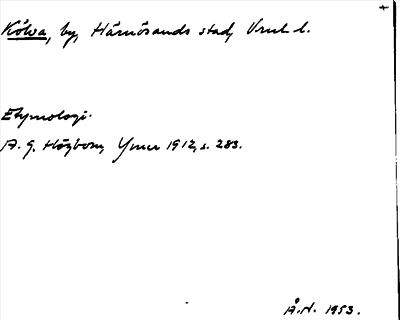 Kölva, by, Härnösands stad, Vrml l.
Etymologi.
A. G. Högbom, Ymer 1912, s. 283.
Å.N. 1953.